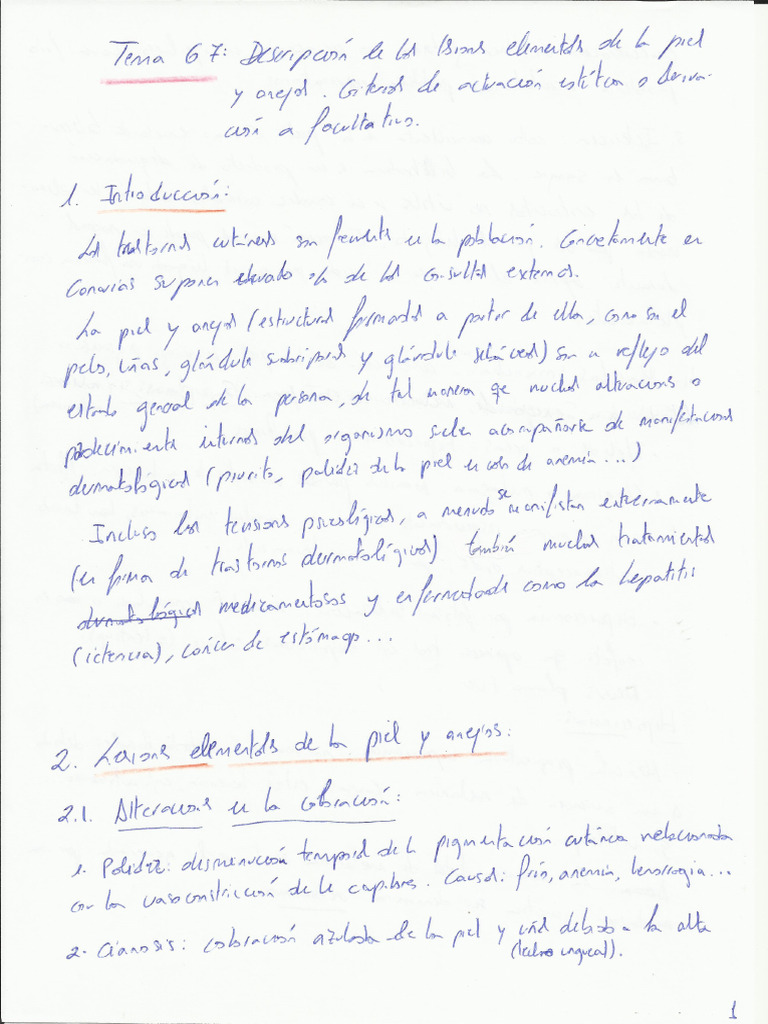 Tema 67: Descripción de las lesiones elementales de la piel
y anejos. Criterios de actuación estética o deriva-
ción a facultativo.
1. Introducción:
Los trastornos cutáneos son frecuentes en la población. Concretamente en
Canarias suponen elevado % de las consultas externas.
La piel y anejos (estructuras formadas a partir de ella, como son el
pelo, uñas, glándulas sudoríparas y glándulas sebáceas) son un reflejo del
estado general de la persona, de tal manera que muchas alteraciones o
padecimientos internos del organismo suelen acompañarse de manifestaciones
dermatológicas (prurito, palidez de la piel en caso de anemia...)
Incluso las tensiones psicológicas, a menudo se manifiestan externamente
(en forma de trastornos dermatológicos) también muchos tratamientos
dermatológicos medicamentosos y enfermedades como la hepatitis
(ictericia), cáncer de estómago...
2. Lesiones elementales de la piel y anejos:
2.1. Alteraciones en la coloración:
1- Palidez: disminución temporal de la pigmentación cutánea relacionada
con la vasoconstricción de los capilares. Causas: frío, anemia, hemorragia...
2- Cianosis: coloración azulada de la piel y uñas debido a la alta
(lecho ungueal).
1